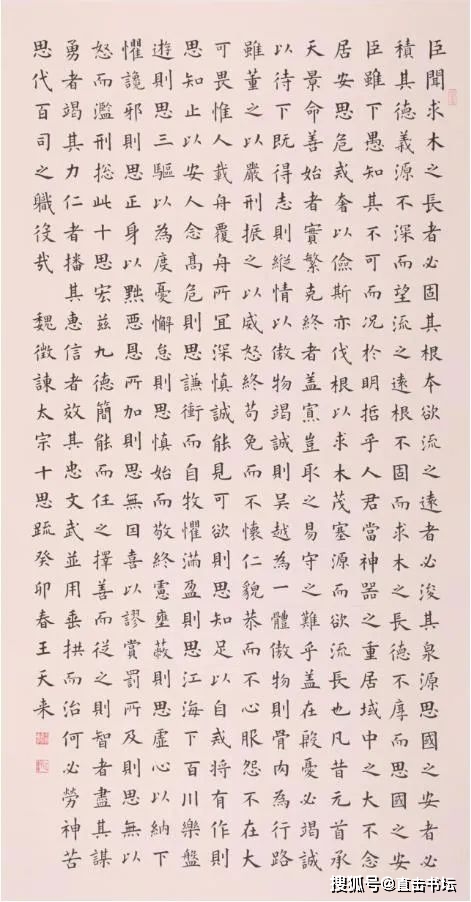 臣聞求木之長者必固其根本欲流之遠者必浚其泉源思國之安者必
積其德義源不深而望流之遠根不固而求木之長德不厚而思國之安
臣雖下愚知其不可而況於明哲乎人君當神器之重居域中之大不念
居安思危戒奢以儉斯亦伐根以求木茂塞源而欲流長也凡昔元首承
天景命善始者實繁克終者蓋寡豈取之易守之難乎蓋在殷憂必竭誠
以待下既得志則縱情以傲物竭誠則吳越為一體傲物則骨肉為行路
雖董之以嚴刑振之以威怒終苟免而不懷仁貌恭而不心服怨不在大
可畏惟人載舟覆舟所宜深慎誠能見可欲則思知足以自戒將有作則
思知止以安人念高危則思謙衝而自牧懼滿盈則思江海下百川樂盤
遊則思三驅以為度憂懈怠則思慎始而敬終慮壅蔽則思虛心以納下
懼讒邪則思正身以黜惡恩所加則思無因喜以謬賞罰所及則思無以
怒而濫刑捴此十思宏茲九德簡能而任之擇善而從之則智者盡其謀
勇者竭其力仁者播其惠信者效其忠文武並用垂拱而治何必勞神苦
思代百司之職役哉 魏徵諫太宗十思疏癸卯春王天来
搜狐号@直击书坛